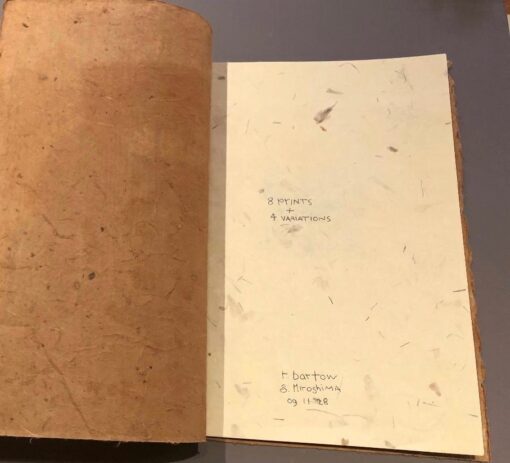 8 PRINTS
+
4 VARIATIONS
r bartow
S. HIROSHIMA
09 11